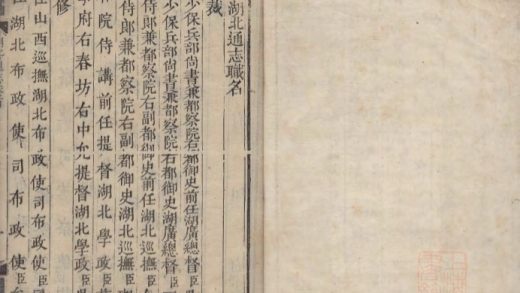 湖北通志職名
裁
少保兵部尚書兼都察院右都御史前任湖廣總督臣
少保兵部尚書兼都察院右都御史湖廣總督臣
侍郎兼都察院右副都御史前任湖北巡撫臣
侍郎兼都察院右副都御史湖北巡撫臣
院侍講前任提督湖北學政臣
府右春坊右中允提督湖北學政臣
修
山西巡撫湖北布政使司布政使臣
湖北布政使司布政使臣